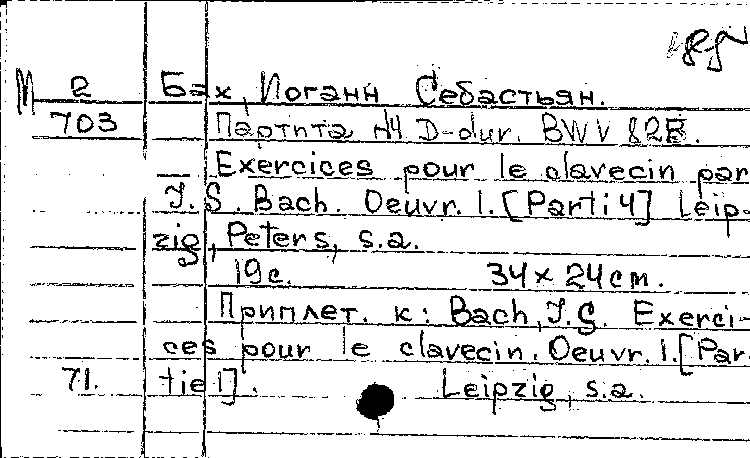 М 2 Бах, Иоганн Себастьян.
703 Партита №4 D-dur. BWV 828.
— Exercices pour le clavecin par
J.S. Bach. Oeuvr. 1. [Parti 4] Leip-
zig, Peters, s.a.
19 с. 34 x 24 cm.
Приплет. к: Bach, J.S. Exerci-
ces pour le clavecin. Oeuvr. 1. [Par-
71. tie 1]. Leipzig, s.a.